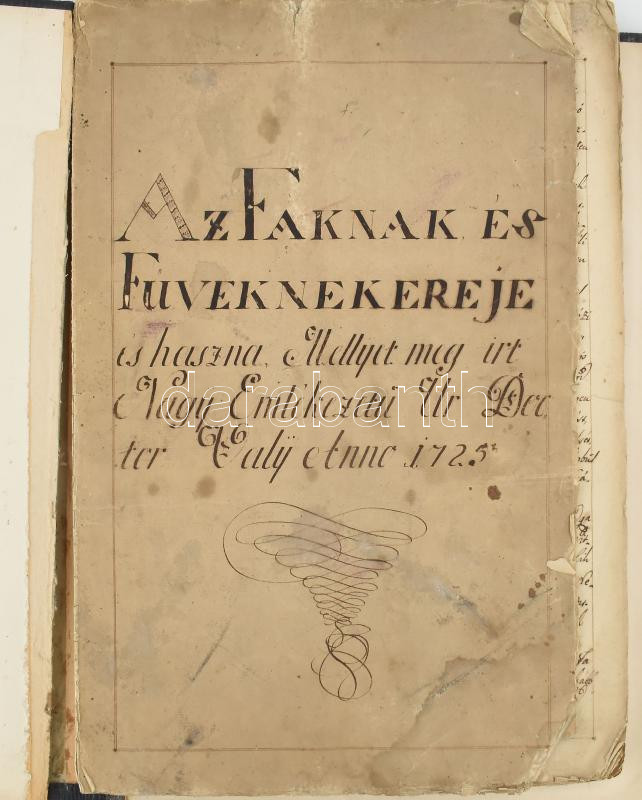 Az Faknak és
Fűveknek ereje
és haszna, Mellyet meg irt
Nagy Emlékezetű Ur Doc
tor Valÿ Anno 1725
darabanth